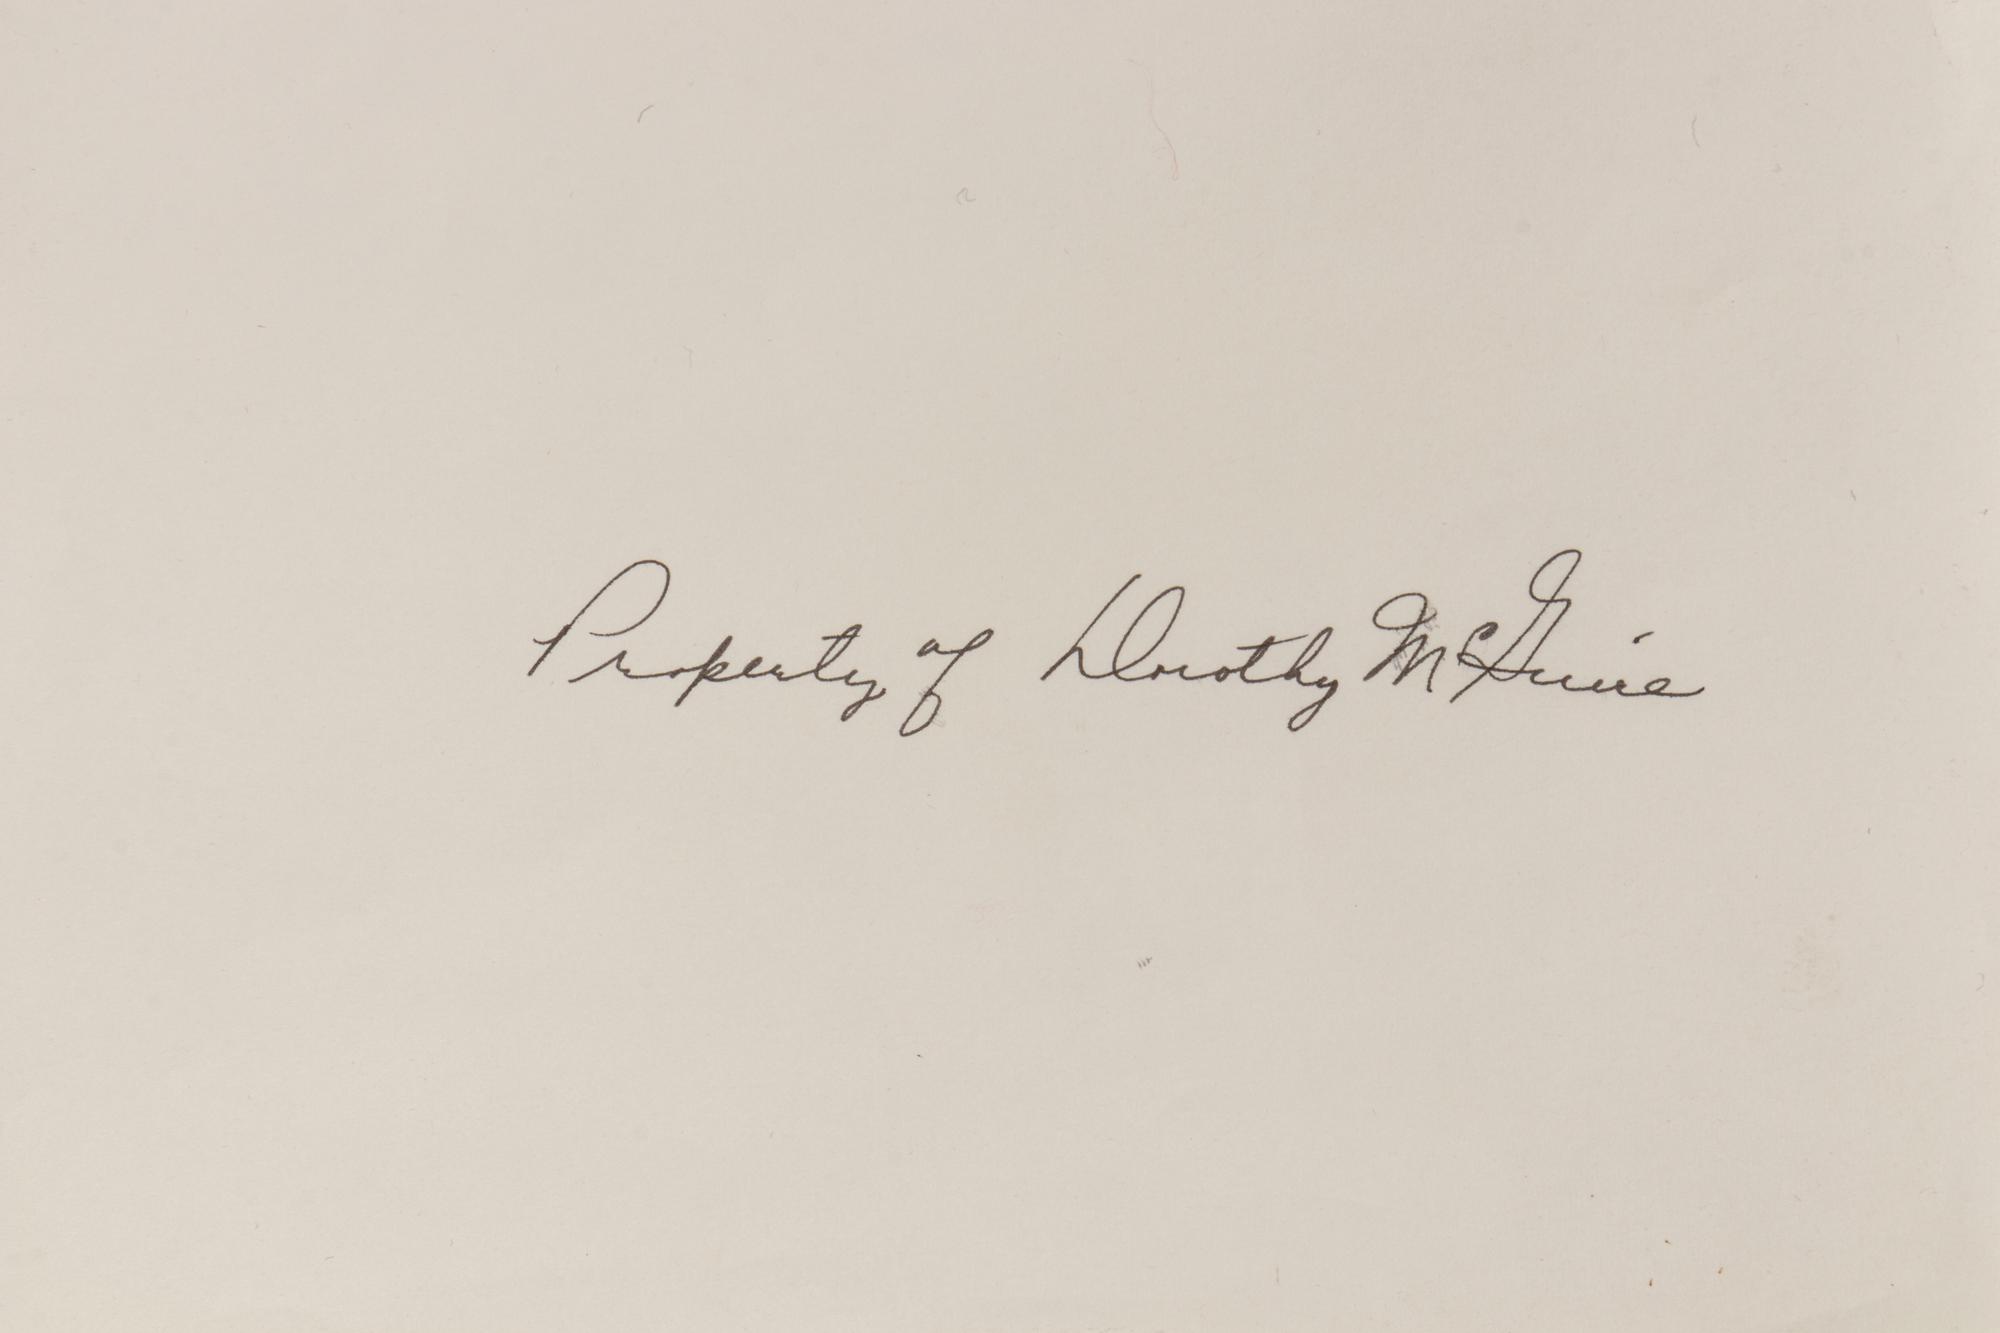 Property of Dorothy McGuire